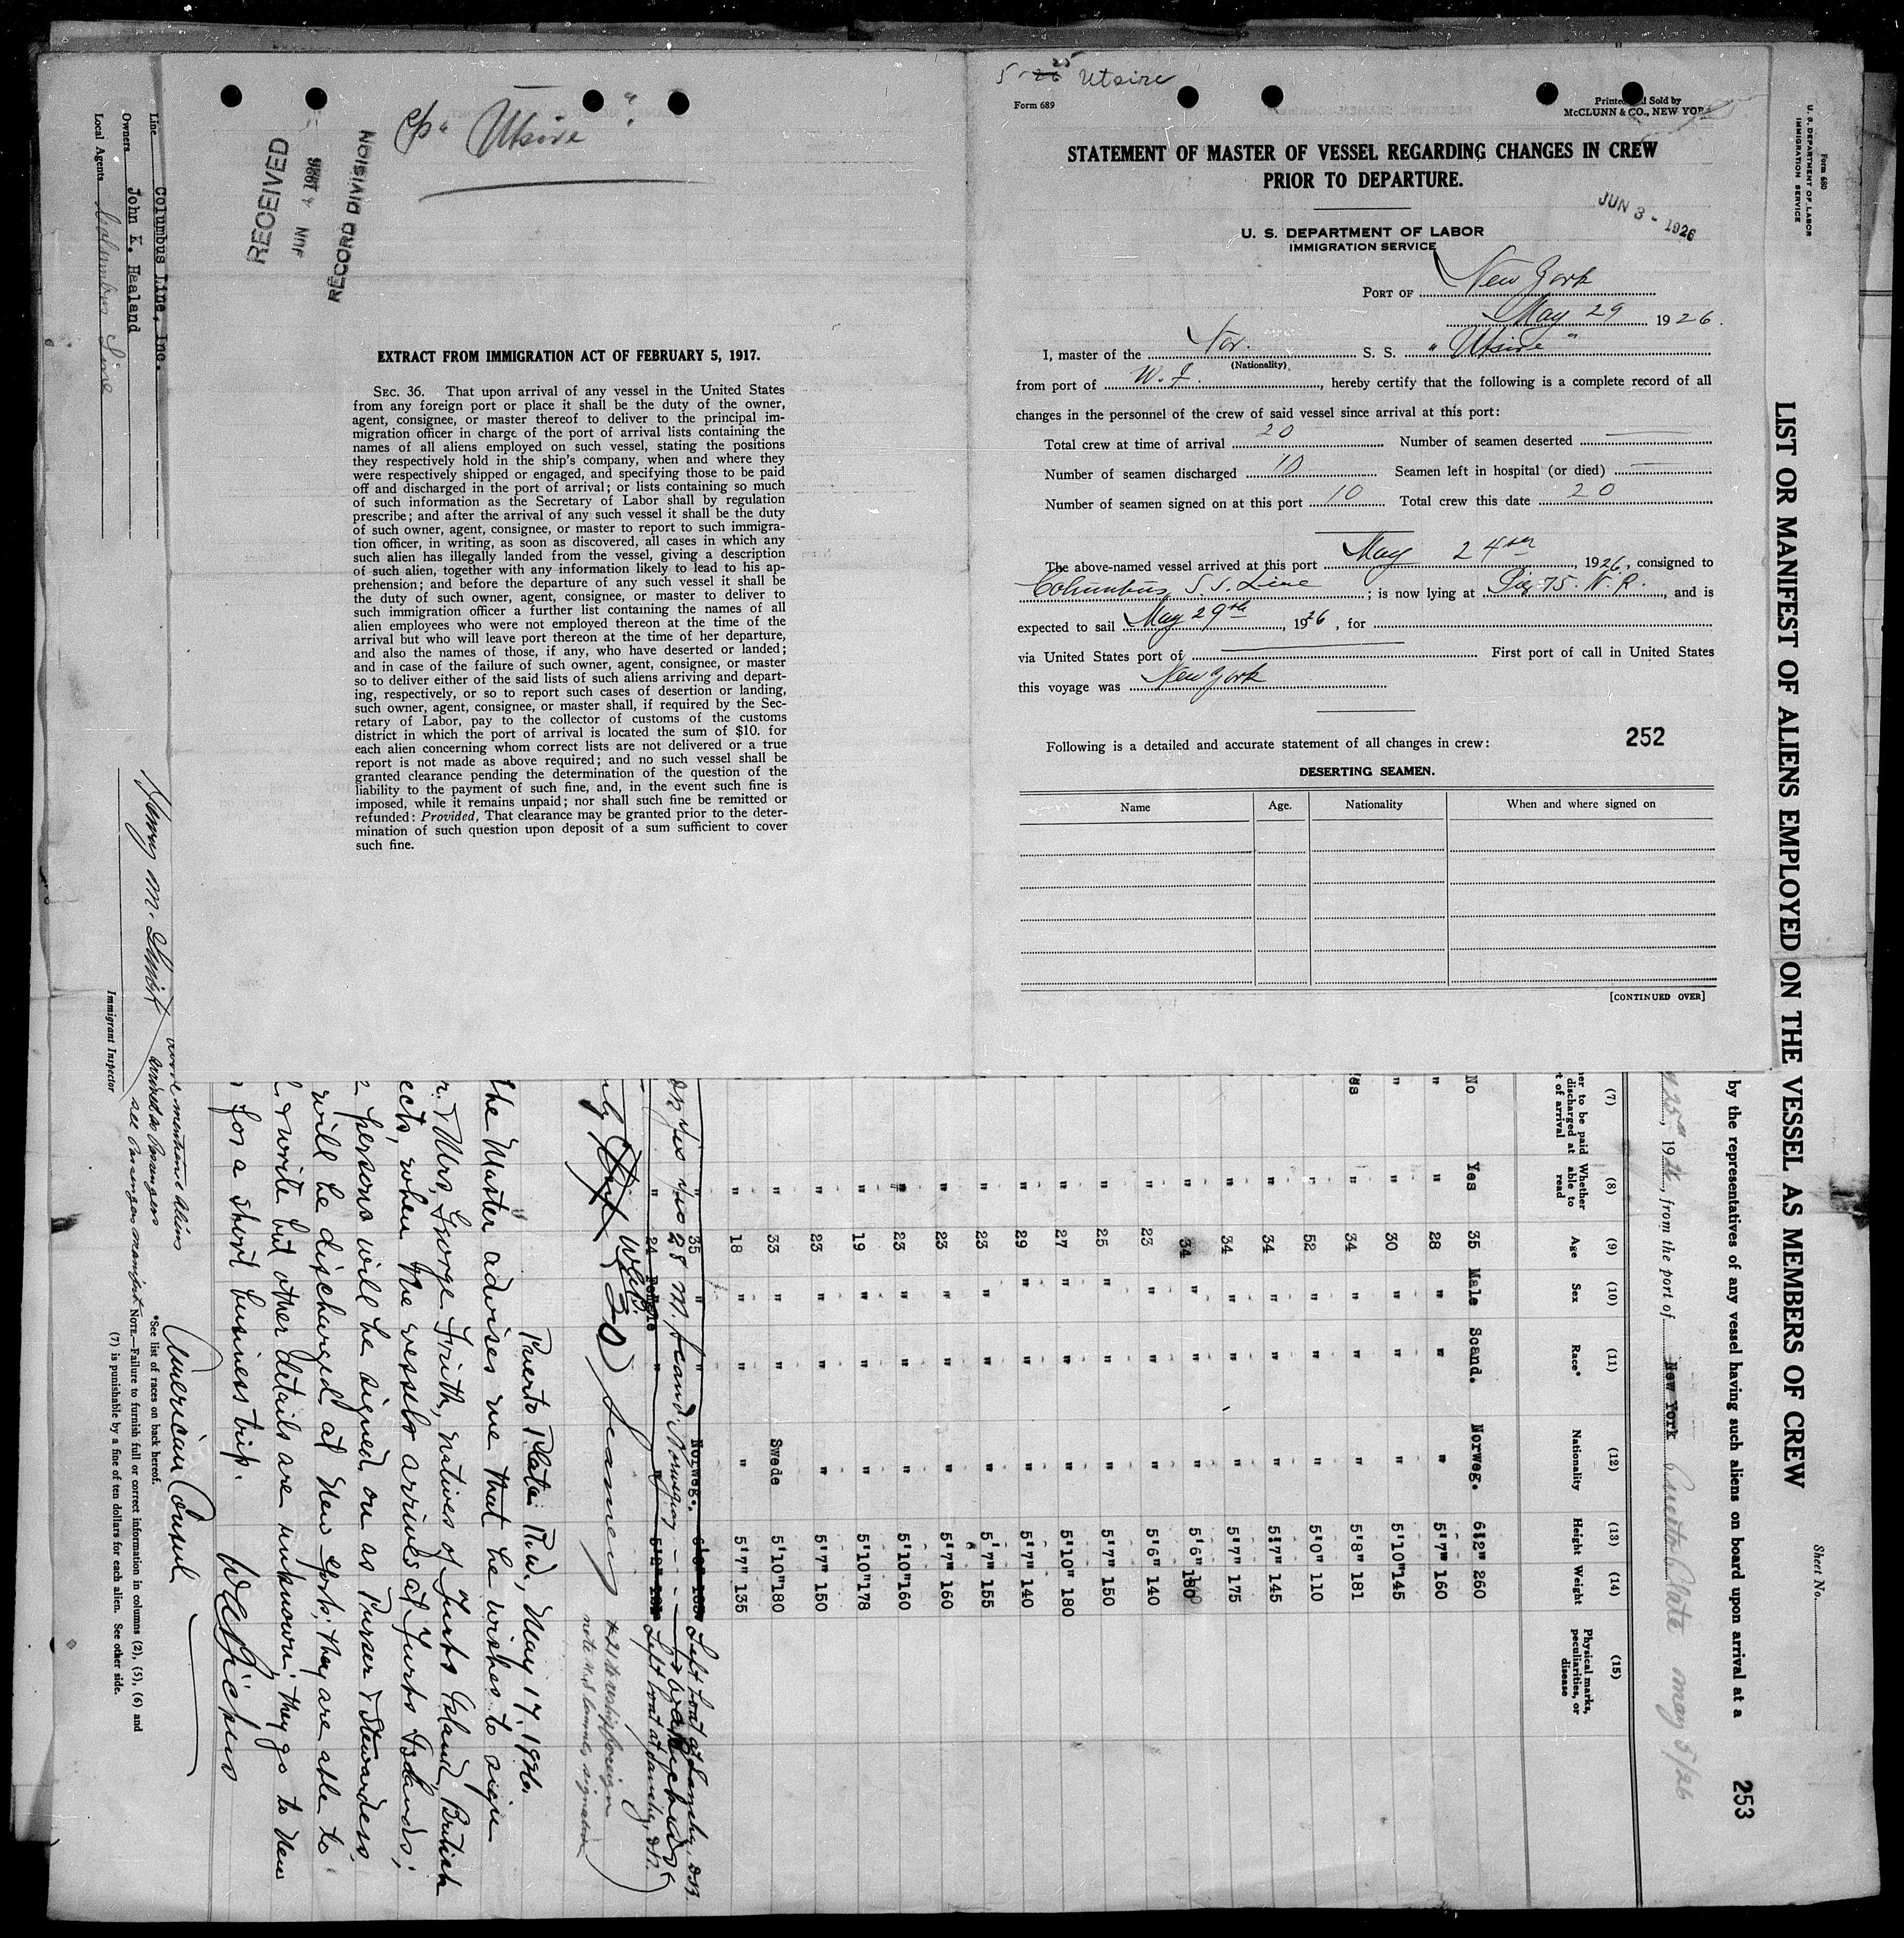 5 - 26 25 Utsire
Form 689
McCLUNN & CO., NEW YORK
STATEMENT OF MASTER OF VESSEL REGARDING CHANGES IN CREW
PRIOR TO DEPARTURE.
JUN 3 - 1926
U. S. DEPARTMENT OF LABOR
IMMIGRATION SERVICE
PORT OF New York
May 29 1926.
I, master of the Nor. S. S. "Utsire"
(Nationality)
from port of W. I., hereby certify that the following is a complete record of all
changes in the personnel of the crew of said vessel since arrival at this port:
Total crew at time of arrival 20 Number of seamen deserted —
Number of seamen discharged 10 Seamen left in hospital (or died) —
Number of seamen signed on at this port 10 Total crew this date 20
The above-named vessel arrived at this port May 24th, 1926, consigned to
Columbus S.S. Line; is now lying at Pier 75 N. R., and is
expected to sail May 29th, 1926, for
via United States port of — First port of call in United States
this voyage was New York
Following is a detailed and accurate statement of all changes in crew: 252
DESERTING SEAMEN.
Name Age. Nationality When and where signed on
[CONTINUED OVER]
S/S "Utsire".
RECEIVED
JUN 4 1926
RECORD DIVISION
EXTRACT FROM IMMIGRATION ACT OF FEBRUARY 5, 1917.
SEC. 36. That upon arrival of any vessel in the United States
from any foreign port or place it shall be the duty of the owner,
agent, consignee, or master thereof to deliver to the principal im-
migration officer in charge of the port of arrival lists containing the
names of all aliens employed on such vessel, stating the positions
they respectively hold in the ship's company, when and where they
were respectively shipped or engaged, and specifying those to be paid
off and discharged in the port of arrival; or lists containing so much
of such information as the Secretary of Labor shall by regulation
prescribe; and after the arrival of any such vessel it shall be the duty
of such owner, agent, consignee, or master to report to such immigra-
tion officer, in writing, as soon as discovered, all cases in which any
such alien has illegally landed from the vessel, giving a description
of such alien, together with any information likely to lead to his ap-
prehension; and before the departure of any such vessel it shall be
the duty of such owner, agent, consignee, or master to deliver to
such immigration officer a further list containing the names of all
alien employees who were not employed thereon at the time of the
arrival but who will leave port thereon at the time of her departure,
and also the names of those, if any, who have deserted or landed;
and in case of the failure of such owner, agent, consignee, or master
so to deliver either of the said lists of such aliens arriving and depart-
ing, respectively, or so to report such cases of desertion or landing,
such owner, agent, consignee, or master shall, if required by the Sec-
retary of Labor, pay to the collector of customs of the customs
district in which the port of arrival is located the sum of $10. for
each alien concerning whom correct lists are not delivered or a true
report is not made as above required; and no such vessel shall be
granted clearance pending the determination of the question of the
liability to the payment of such fine, and, in the event such fine is
imposed, while it remains unpaid; nor shall such fine be remitted or
refunded: Provided, That clearance may be granted prior to the deter-
mination of such question upon deposit of a sum sufficient to cover
such fine.
Form 680
U. S. DEPARTMENT OF LABOR
IMMIGRATION SERVICE
Sheet No.
LIST OR MANIFEST OF ALIENS EMPLOYED ON THE VESSEL AS MEMBERS OF CREW
by the representatives of any vessel having such aliens on board upon arrival at a 253
25, 1926, from the port of New York Puerto Plata May 5/26
(7) (8) (9) (10) (11) (12) (13) (14) (15)
her to be paid discharged at t of arrival
Whether able to read
Age
Sex
Race*
Nationality
Height
Weight
Physical marks, peculiarities, or disease
No Yes 35 Male Scand. Norweg. 6'2" 260
" " 28 " " " 5'7" 160
" " 30 " " " 5'10" 145
es " 34 " " " 5'8" 181
" 52 " " " 5'0" 110
" 34 " " " 5'7" 145
" 34 " " " 5'7" 175
" 34 " " " 5'6" 180
" 23 " " " 5'6" 140
" 25 " " " 5'7" 150
" 27 " " " 5'10" 180
" 29 " " " 5'7" 140
" 23 " " " 5'7" 155
" 23 " " " 5'7" 160
" 23 " " " 5'10" 160
" 19 " " " 5'10" 178
" 23 " " " 5'7" 150
" 33 " " Swede 5'10" 180
" 18 " " " 5'7" 135
" 35 " " Norweg.
yes yes 28 M. Scand. Norway
" 24 Female "
(20) Seamen
Puerto Plata R.D., May 17, 1926.
the Master advises me that he wishes to sign
r. & Mrs. George Frith, natives of Turks Island, British
ects, when the vessel arrives at Turks Islands;
persons will be signed on as Purser & Stewardess
will be discharged at New York; they are able to
& write but other details are unknown; they go to New
for a short business trip.
American Consul
*See list of races on back hereof.
NOTE.—Failure to furnish full or correct information in columns (2), (5), (6) and
(7) is punishable by a fine of ten dollars for each alien. See other side.
above mentioned aliens
see Passenger manifest
Immigrant Inspector
Line Columbus Line, Inc.
Owners John K. Healand
Local Agents Columbus Line